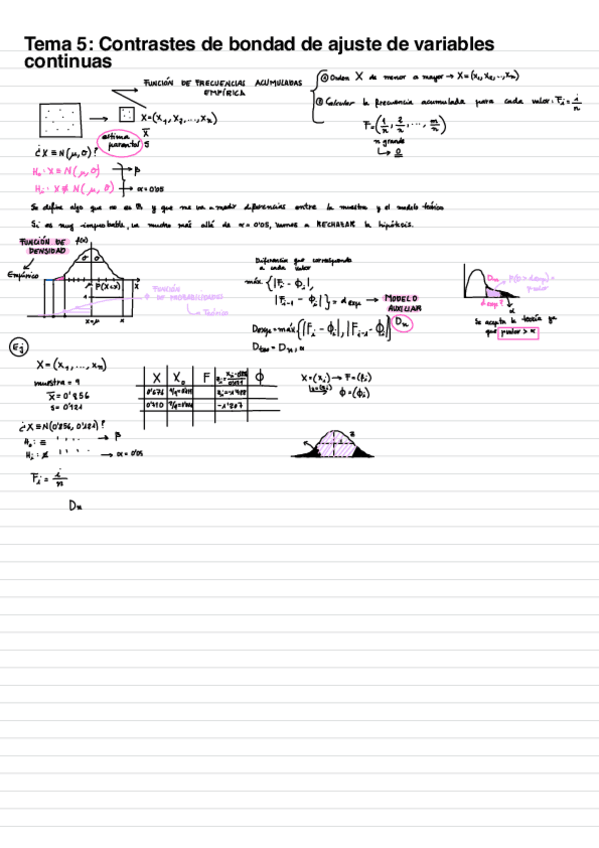 Tema 5: Contrastes de bondad de ajuste de variables
continuas
FUNCIÓN DE FRECUENCIAS ACUMULADAS
EMPÍRICA
① Orden X de menor a mayor → X = (x₁, x₂, ..., xₙ)
② Calcular la frecuencia acumulada para cada valor: Fᵢ = i/n
X = (x₁, x₂, ..., xₙ)
F = (1/n, 2/n, ..., n/n)
n grande
↳ 0
X̄
S
estima
parental
¿X ≡ N(μ, σ)?
H₀: X ≡ N(μ, σ) → β
H₁: X ≢ N(μ, σ) → α = 0'05
Se define algo que no es θ y que me va a medir diferencias entre la muestra y el modelo teórico
Si es muy improbable, un mucho más allá de α = 0'05, vamos a RECHAZAR la hipótesis.
FUNCIÓN DE
DENSIDAD
f(x)
Empírico
σ σ
P(X<x)
x=μ
x
FUNCIÓN
DE PROBABILIDADES
↳ Teórico
Diferencia que corresponda
a cada valor
máx. {|Fᵢ - ϕᵢ|,
|Fᵢ₋₁ - ϕᵢ|} = d exp → MODELO
AUXILIAR
Dₙ
Dexp = máx {|Fᵢ - ϕᵢ|, |Fᵢ₋₁ - ϕᵢ|}
Dtab = Dₙ, α
Dₙ
P(D > dexp) =
pvalor
d exp
α
Se acepta la teoría ya
que pvalor > α
Ej
X = (x₁, ..., xₙ)
muestra = 9
x̄ = 0'856
s = 0'121
X Xₒ F ϕ
0'676
0'710
-1'207
X = (xᵢ) → F = (fᵢ)
ϕ = (ϕᵢ)
¿X ≡ N(0'856, 0'121)?
H₀: ≡ → β
H₁: ≢ → α = 0'05
z
Fᵢ = i/n
Dₙ